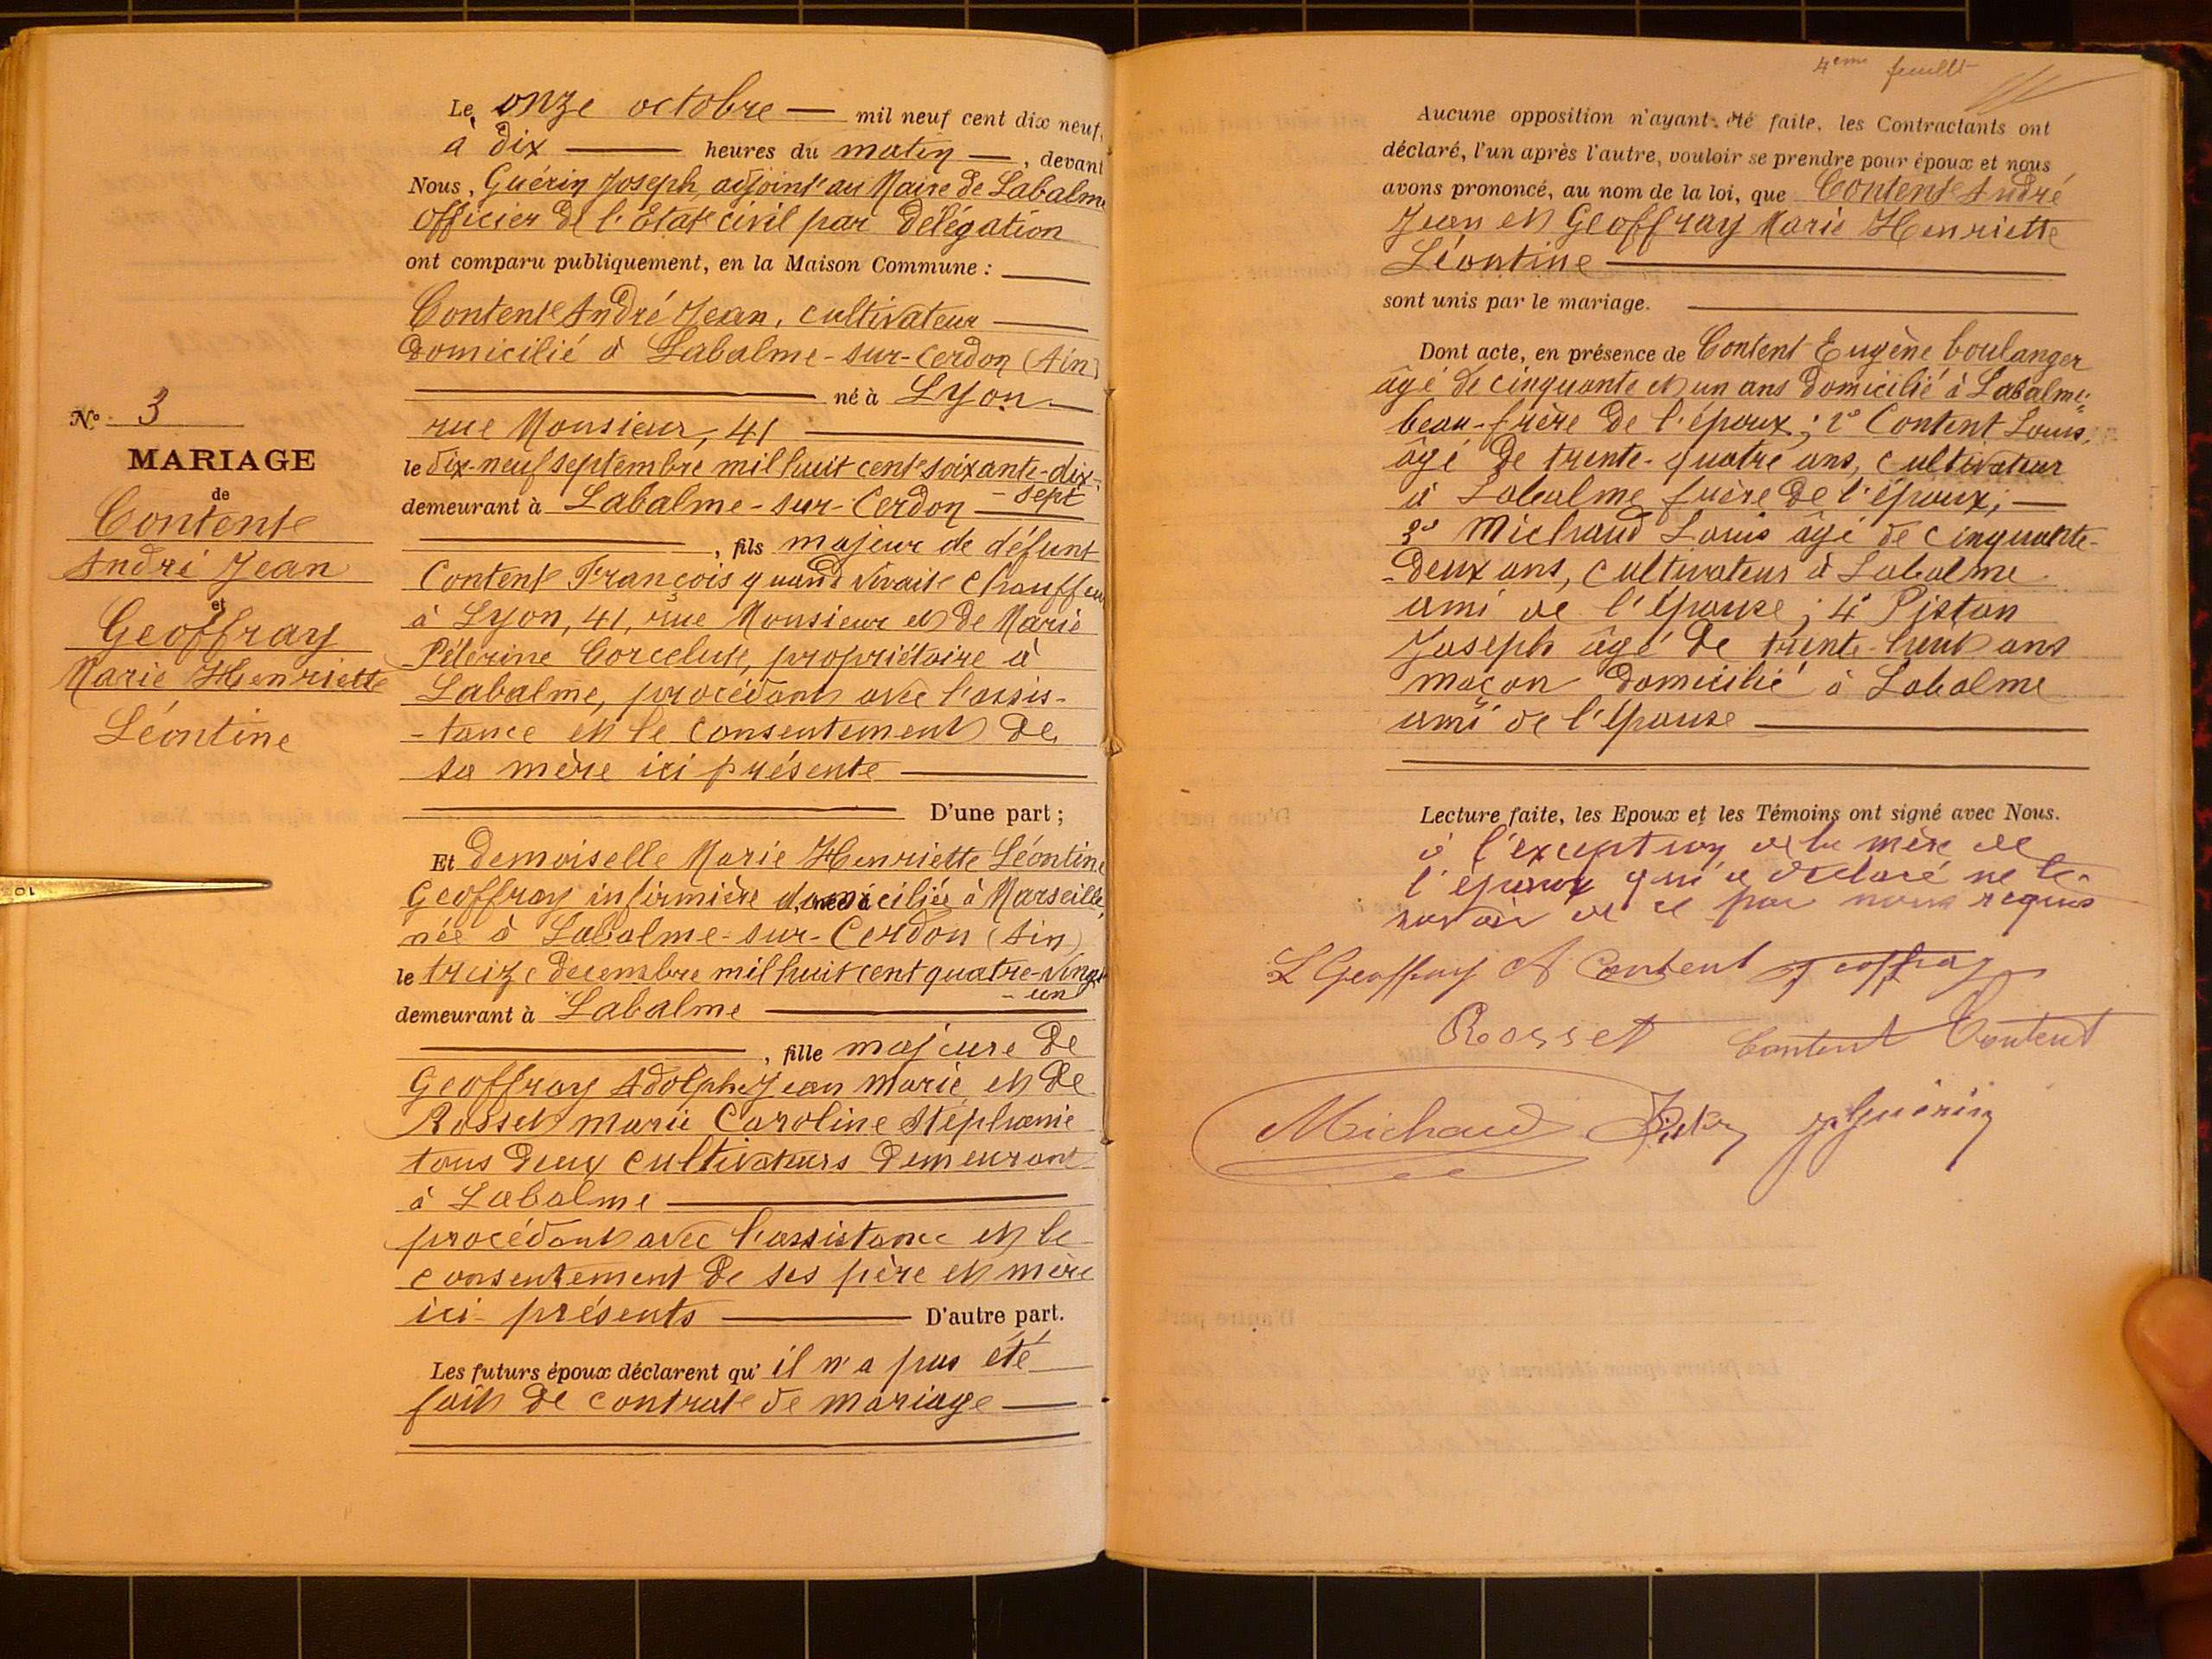 Le onze octobre — mil neuf cent dix neuf,
à dix — heures du matin —, devant
Nous, Guérin Joseph adjoint au Maire de Labalme
officier de l'Etat civil par délégation
ont comparu publiquement, en la Maison Commune :
Content André Jean, cultivateur
domicilié à Labalme-sur-Cerdon (Ain)
né à Lyon
rue Monsieur, 41
le dix-neuf septembre mil huit cent soixante-dix-
- sept
demeurant à Labalme-sur-Cerdon
, fils majeur de défunt
Content François quand vivait chauffeur
à Lyon, 41, rue Monsieur et de Marie
Pélerine Corcelut, propriétaire à
Labalme, procédant avec l'assis-
-tance et le consentement de
sa mère ici présente
D'une part ;
Et demoiselle Marie Henriette Léontine
Geoffray infirmière domiciliée à Marseille,
née à Labalme-sur-Cerdon (Ain)
le treize decembre mil huit cent quatre-vingt
- un
demeurant à Labalme
, fille majeure de
Geoffray Adolphe Jean Marie et de
Rosset Marie Caroline Stéphanie
tous deux cultivateurs demeurant
à Labalme
procédant avec l'assistance et le
consentement de ses père et mère
ici présents — D'autre part.
Les futurs époux déclarent qu'il n'a pas été
fait de contrat de mariage
Nº 3
MARIAGE
de
Content
André Jean
et
Geoffray
Marie Henriette
Léontine
10
4eme feuillet
Aucune opposition n'ayant été faite, les Contractants ont
déclaré, l'un après l'autre, vouloir se prendre pour époux et nous
avons prononcé, au nom de la loi, que Content André
Jean et Geoffray Marie Henriette
Léontine
sont unis par le mariage.
Dont acte, en présence de Content Eugène boulanger
âgé de cinquante et un ans domicilié à Labalme
beau-frère de l'époux ; 2º Content Louis,
âgé de trente-quatre ans, cultivateur
à Labalme frère de l'époux ;
3º Michaud Louis âgé de cinquante-
-deux ans, cultivateur à Labalme
ami de l'épouse ; 4º Piston
Joseph âgé de trente-huit ans
maçon domicilié à Labalme
ami de l'épouse
Lecture faite, les Epoux et les Témoins ont signé avec Nous.
à l'exception de la mère de
l'époux qui a déclaré ne le
savoir de ce par nous requis
L Geoffray A Content Geoffray
Rosset Content Content
Michaud Piston J Guérin